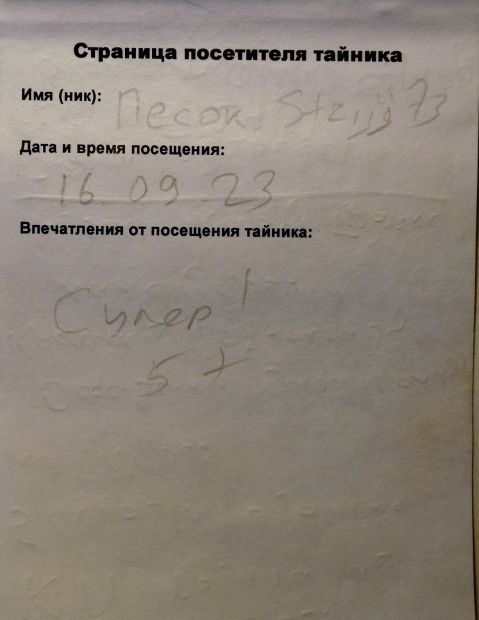 Страница посетителя тайника
Имя (ник):
Песок
Дата и время посещения:
16 09 23
Впечатления от посещения тайника:
Супер!
5+